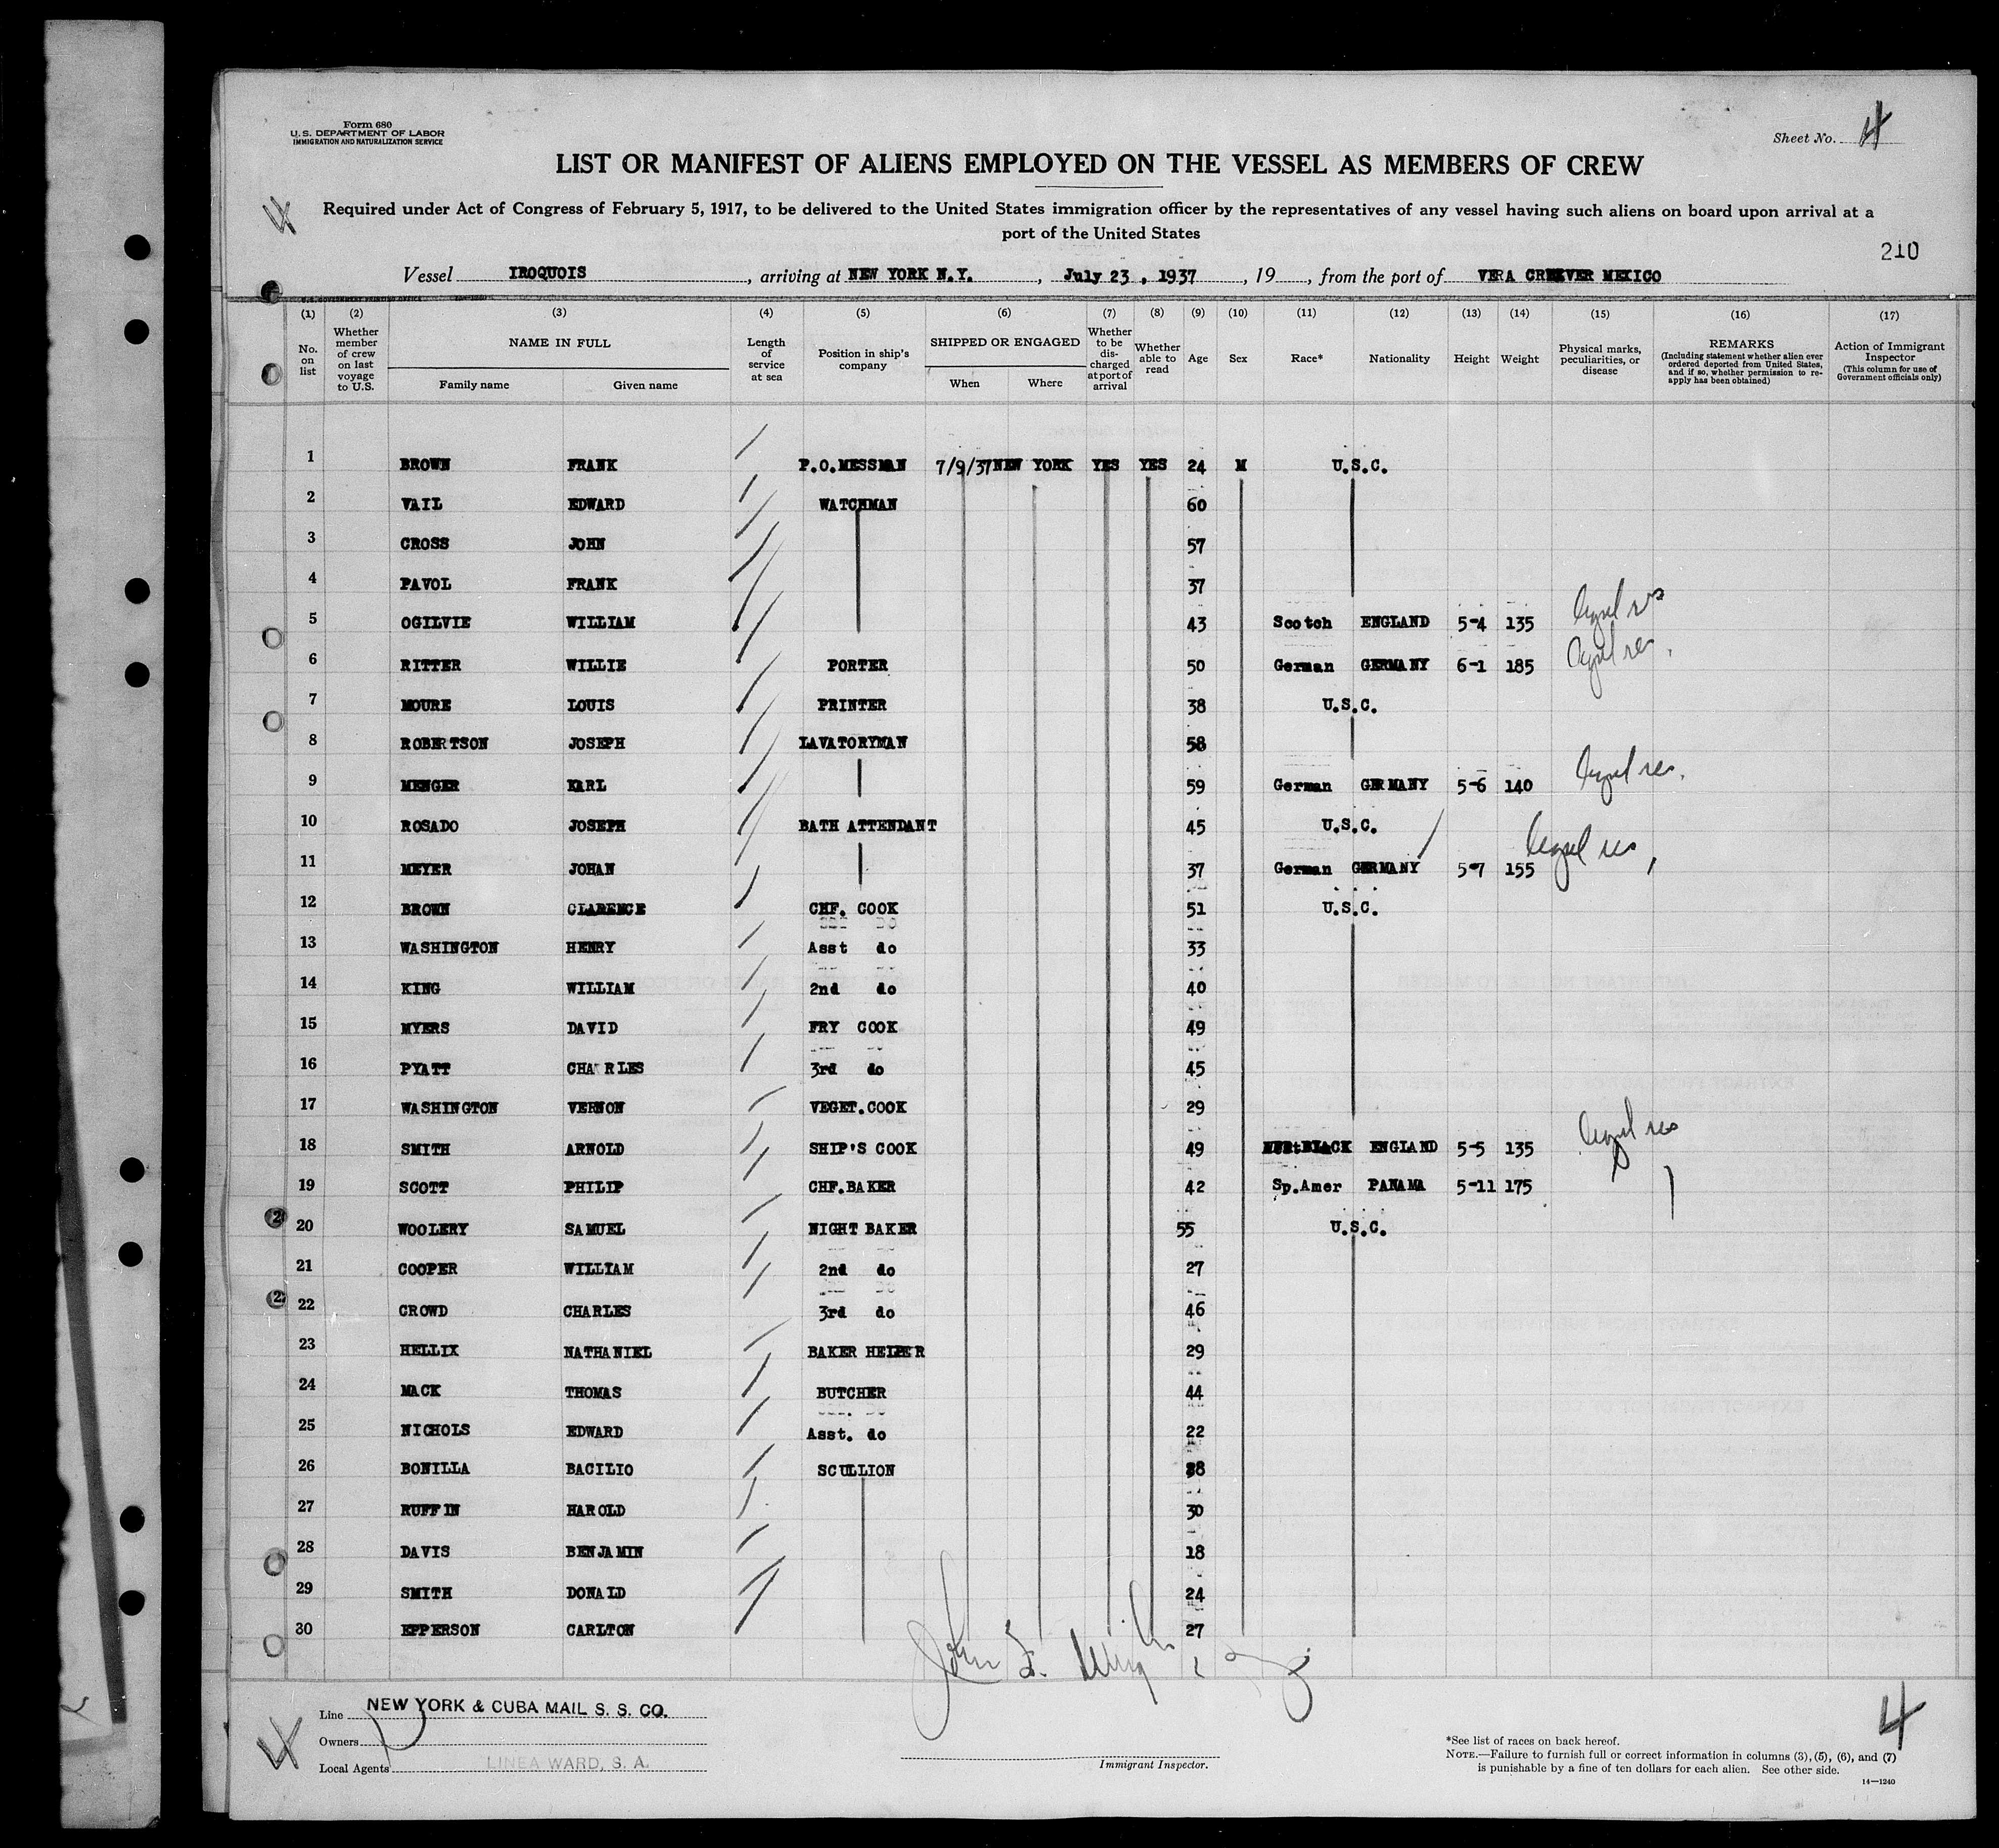 Form 680
U. S. DEPARTMENT OF LABOR
IMMIGRATION AND NATURALIZATION SERVICE
Sheet No. 4
LIST OR MANIFEST OF ALIENS EMPLOYED ON THE VESSEL AS MEMBERS OF CREW
4
Required under Act of Congress of February 5, 1917, to be delivered to the United States immigration officer by the representatives of any vessel having such aliens on board upon arrival at a
port of the United States
210
Vessel IROQUOIS, arriving at NEW YORK N.Y., July 23, 1937, 19, from the port of VERA MEXICO
(1) (2) (3) (4) (5) (6) (7) (8) (9) (10) (11) (12) (13) (14) (15) (16) (17)
No. on list
Whether member of crew on last voyage to U.S.
NAME IN FULL
Family name Given name
Length of service at sea
Position in ship's company
SHIPPED OR ENGAGED
When Where
Whether to be discharged at port of arrival
Whether able to read
Age
Sex
Race*
Nationality
Height
Weight
Physical marks, peculiarities, or disease
REMARKS
(Including statement whether alien ever ordered deported from United States, and if so, whether permission to reapply has been obtained)
Action of Immigrant Inspector
(This column for use of Government officials only)
1 BROWN FRANK P.O.MESSMAN 7/9/37 NEW YORK YES YES 24 M U.S.C.
2 VAIL EDWARD WATCHMAN 60
3 CROSS JOHN 57
4 PAVOL FRANK 37
5 OGILVIE WILLIAM 43 Scotch ENGLAND 5-4 135 legal res
6 RITTER WILLIE PORTER 50 German GERMANY 6-1 185 legal res.
7 MOURE LOUIS PRINTER 38 U.S.C.
8 ROBERTSON JOSEPH LAVATORYMAN 58
9 MENGER KARL 59 German GERMANY 5-6 140 legal res.
10 ROSADO JOSEPH BATH ATTENDANT 45 U.S.C.
11 MEYER JOHAN 37 German GERMANY 5-7 155 legal res
12 BROWN CLARENCE CHF. COOK 51 U.S.C.
13 WASHINGTON HENRY Asst do 33
14 KING WILLIAM 2nd do 40
15 MYERS DAVID FRY COOK 49
16 PYATT CHARLES 3rd do 45
17 WASHINGTON VERNON VEGET.COOK 29
18 SMITH ARNOLD SHIP'S COOK 49 BLACK ENGLAND 5-5 135 legal res
19 SCOTT PHILIP CHF.BAKER 42 Sp.Amer PANAMA 5-11 175
20 WOOLERY SAMUEL NIGHT BAKER 55 U.S.C.
21 COOPER WILLIAM 2nd do 27
22 CROWD CHARLES 3rd do 46
23 HELLIX NATHANIEL BAKER HELPER 29
24 MACK THOMAS BUTCHER 44
25 NICHOLS EDWARD Asst. do 22
26 BONILLA BACILIO SCULLION 38
27 RUFFIN HAROLD 30
28 DAVIS BENJAMIN 18
29 SMITH DONALD 24
30 EPPERSON CARLTON 27
John F.
Line NEW YORK & CUBA MAIL S. S. CO.
Owners
Local Agents LINEA WARD, S. A.
4
Immigrant Inspector.
4
*See list of races on back hereof.
NOTE.—Failure to furnish full or correct information in columns (3), (5), (6), and (7)
is punishable by a fine of ten dollars for each alien. See other side.
14—1240